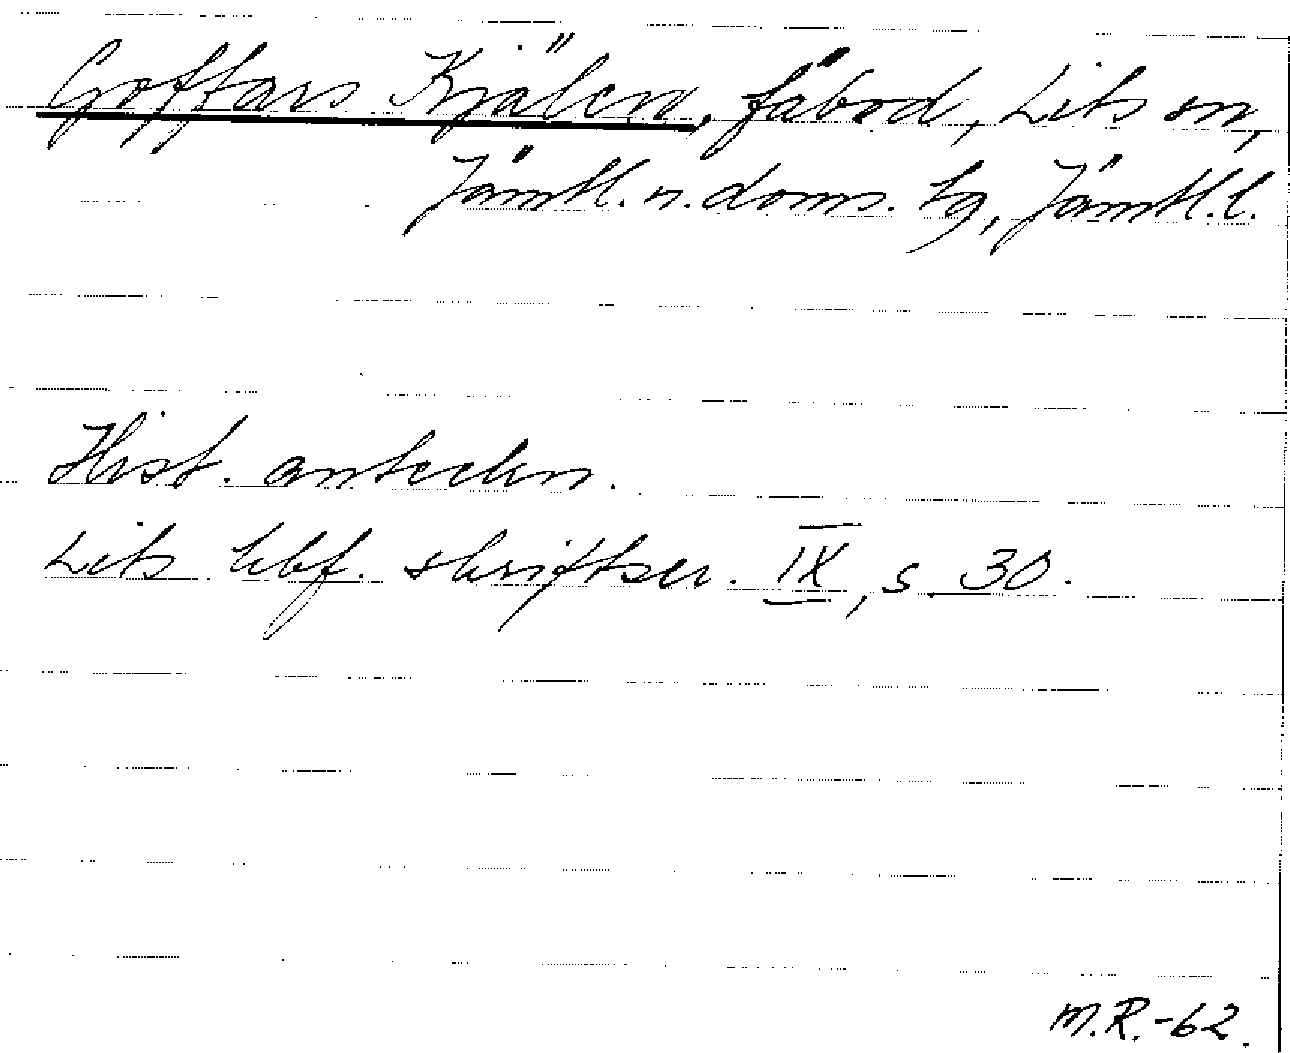 Goffars Kjälen, fäbod, Lits sn,
Jämtl. n. doms. tg, Jämtl. l.
Hist. anteckn.
Lits hbf. skriftser. IX, s. 30.
M.R.-62.